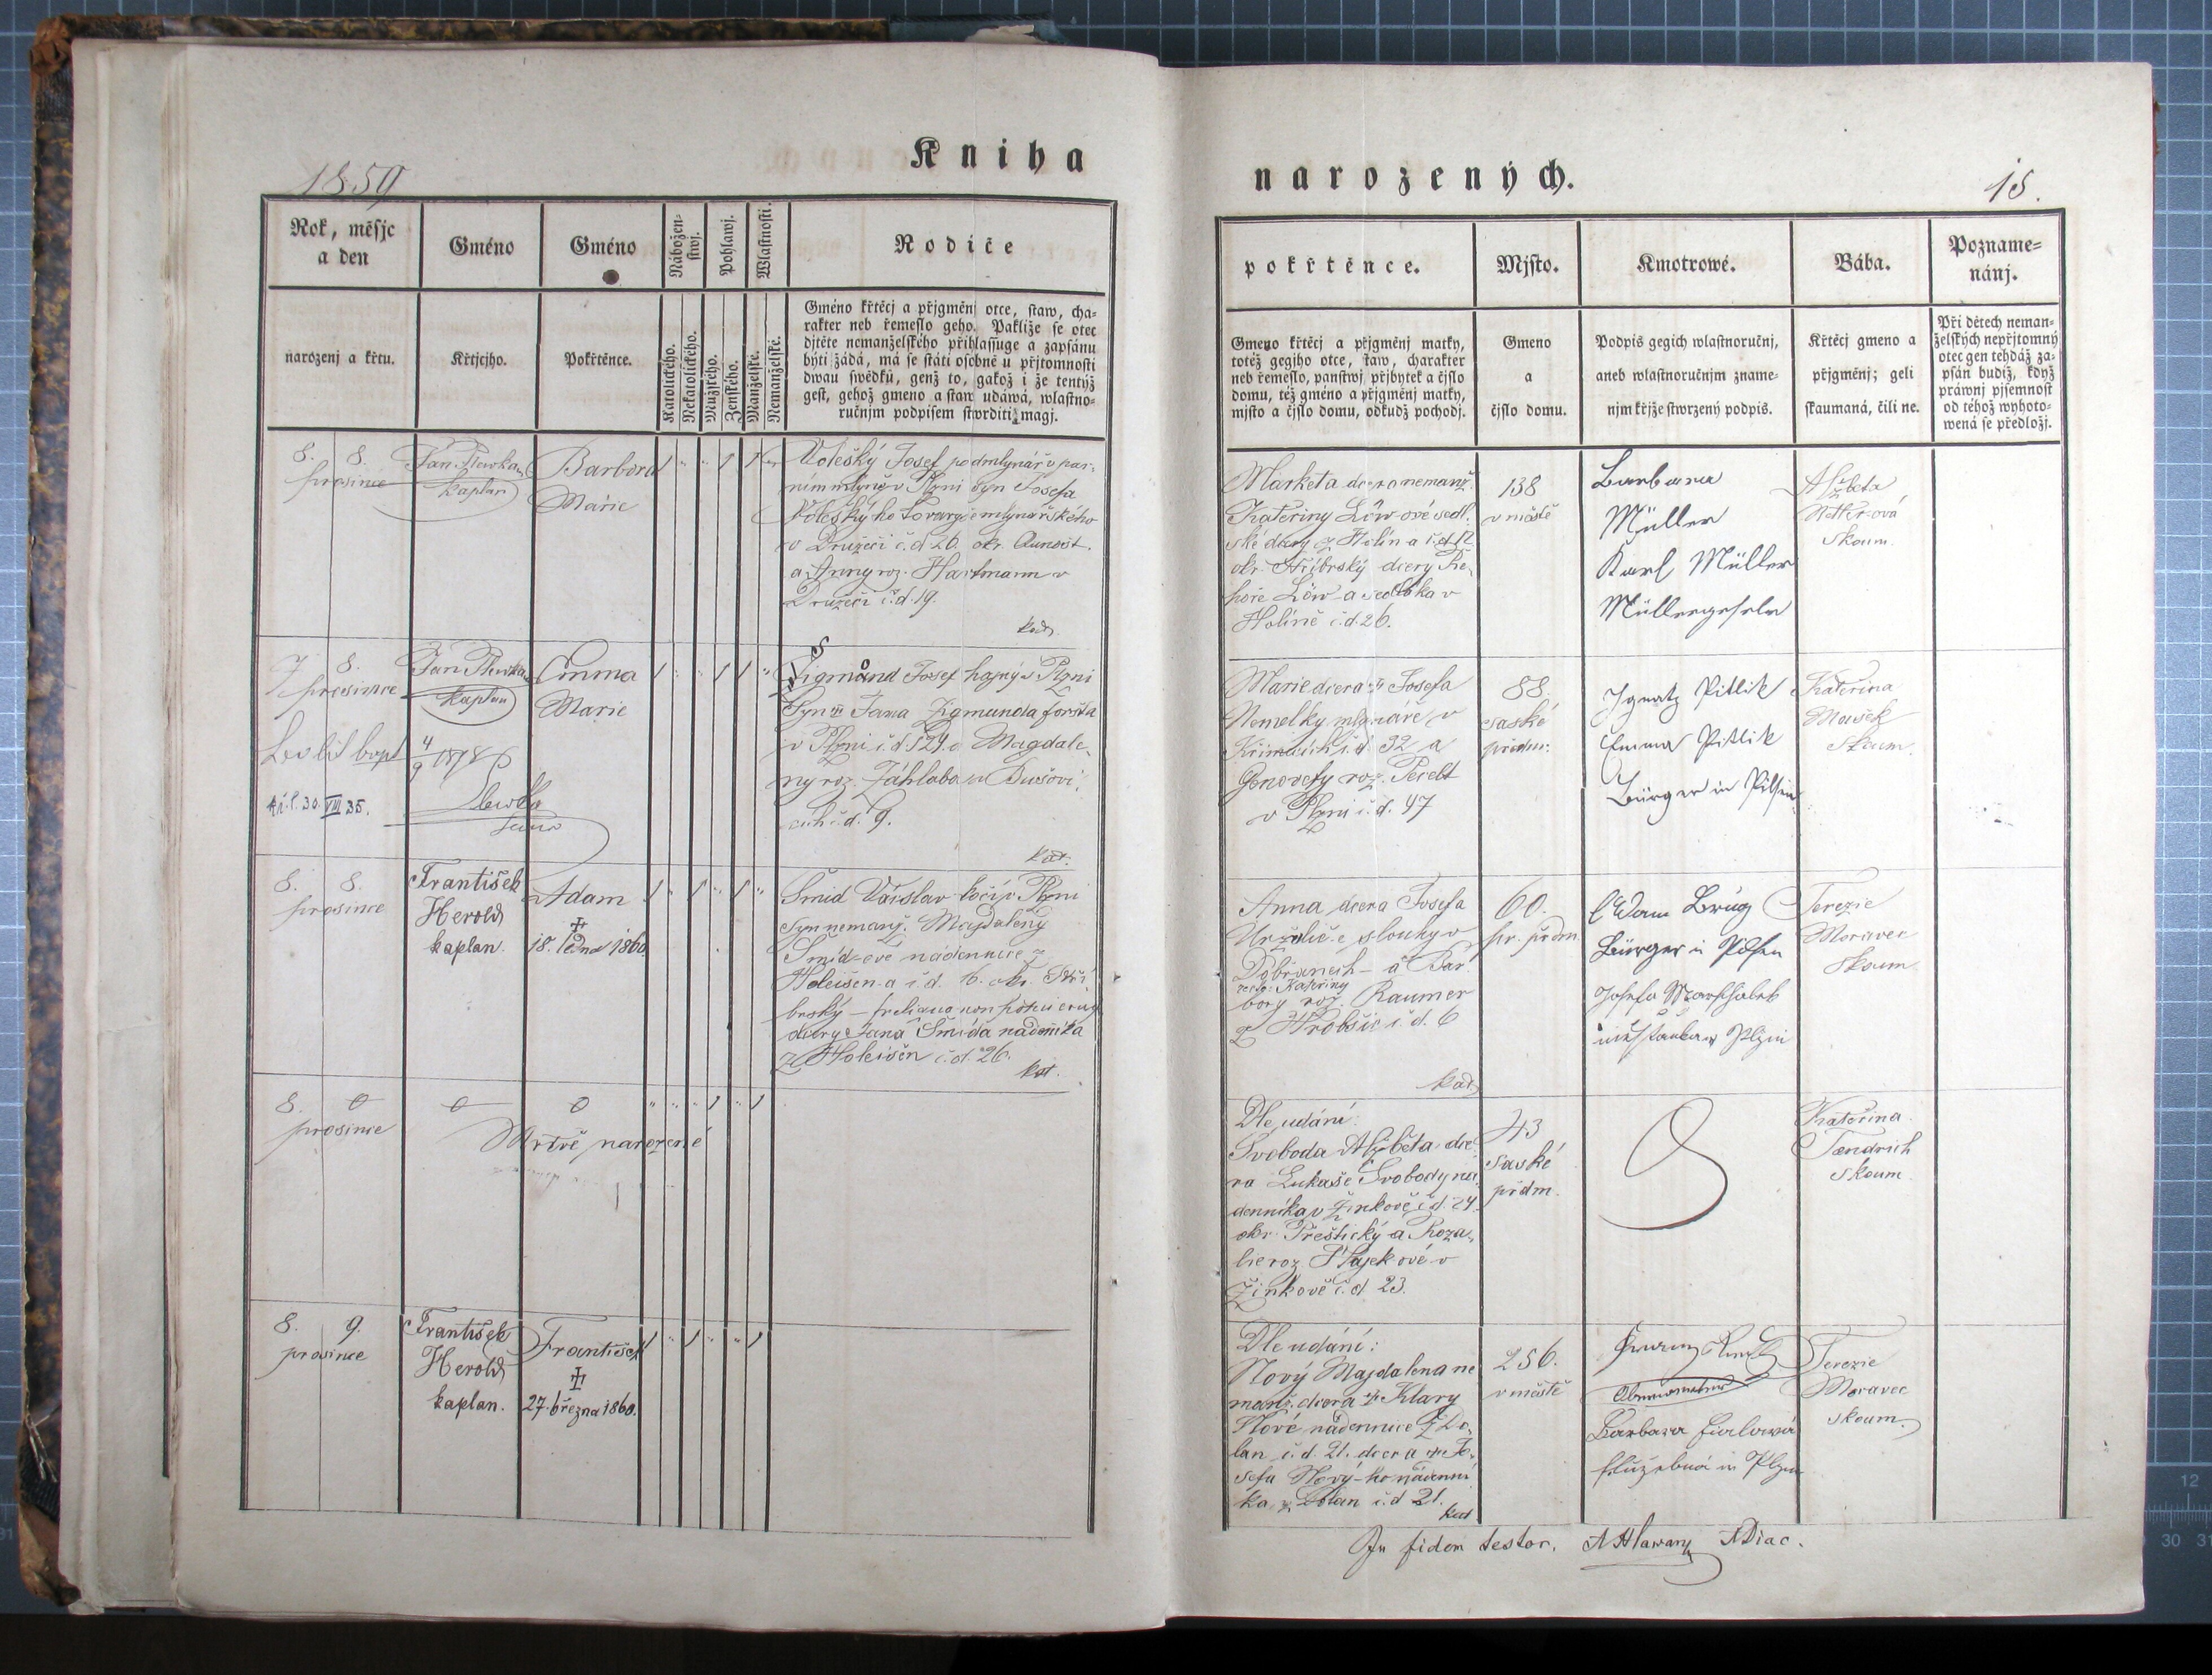 Kniha
1859
Rok, měsjc
a den
Gméno
Gméno
Nábožen-
stwj.
Pohlawj.
Wlastnosti.
Rodiče
narozenj a křtu.
Křtjcjho.
Pokřtěnce.
Katolického.
Nekatolického.
Mužského.
Ženského.
Manželské.
Nemanželské.
Gméno křtěcj a přjgměnj otce, staw, cha-
rakter neb řemeslo geho. Pakliže se otec
djtěte nemanželského přihlassuge a zapsánu
býti žádá, má se státi osobně u přjtomnosti
dwau swědků, genž to, gakož i že tentýž
gest, gehož gmeno a staw udáwá, wlastno-
ručnjm podpisem stwrditi magj.
8. 8.
prosince
Jan Plewka
kaplan
Barbora
Marie
Volešký Josef podmlynář v par-
nim mlýně v Plzni syn Josefa
Volešký ho tovaryše mlynářského
v Druzeči č.d 26. okr. Aunošt.
a Anny roz. Hartmann v
Druzeči č.d. 19.
kat.
7 8.
prosince
Jan Plewka
kaplan
Emma
Marie
Sigmund Josef hajný v Plzni
Syn Jana Zigmunda foršta
v Plzni č.d 124. a Magdale-
ny roz. Záhlaba v Bušovi-
cích č.d. 9.
kat.
4/9 1878
30. VIII 35.
8. 8.
prosince
František
Herold
kaplan.
Adam
18. ledna 1860
Šmid Váslav kočí v Plzni
syn nemanž. Magdaleny
Šmid-ové nádennice z
Holeišen-a č.d. 16. okr. Stří-
brský
dcery Jana Šmída nádeníka
z Holeišen č.d. 26.
kat.
8.
prosince
Mrtvě narozené
8. 9.
prosince
František
Herold
kaplan.
František
27. března 1860.
narozených.
15.
pokřtěnce.
Mjsto.
Kmotrowé.
Bába.
Pozname-
nánj.
Gmeno křtěcj a přjgměnj matky,
totéž gegjho otce, staw, charakter
neb řemeslo, panstwj, přjbytek a čjslo
domu, též gméno a přjgměnj matky,
mjsto a čjslo domu, odkudž pochodj.
Gmeno
a
čjslo domu.
Podpis gegich wlastnoručnj,
aneb wlastnoručnjm zname-
njm křjže stwrzený podpis.
Křtěcj gmeno a
přjgměnj; geli
skaumaná, čili ne.
Při dětech neman-
želských nepřjtomný
otec gen tehdáž za-
psán budiž, když
práwnj pjsemnost
od téhož wyhoto-
wená se předložj.
Marketa dcera nemanž.
Kateřiny Löw-ové sedl-
ské dcery z Holín a č.d 12
okr. Stříbrský dcery Ře-
hoře Löw-a sedláka v
Holíně č.d. 26.
138
v městě
Barbara
Müller
Karl Müller
Müllergeselle
Alžběta
skoum.
Marie dcera Josefa
Nemelky mlynáře v
Křimicích č.d. 32 a
Genovefy roz. Pecelt
v Plzni č.d. 47
88.
saské
předm:
Ignatz Pitlik
Emma Pitlik
Bürger in Pilsen
Kateřina
Mašek
Skoum.
Anna dcera Josefa
slouhy v
Dobřanech - a Bar-
recte: Kateřiny
bory roz. Raumer
z Wrobšic č.d. 6
kat.
60.
pr. předm
Adam Brüg
Bürger in Pilsen
Josefa Marschalek
měštanka v Plzni
Terezie
Moravec
Skoum
Dle udání:
Svoboda Alžběta dce-
ra Lukaše Svobody ná-
denníka v Žinkově č.d. 24.
okr. Přeštický a Roza-
lie roz. Hájek ové v
Žinkově č.d 23.
43
saské
přdm.
Kateřina
Jendrich
skoum
Dle udání:
Nový Magdalena ne
manž. dcera Klary
Nové nádennice z Do-
lan č.d 21. dcera Jo-
sefa Nový-ho nádenní
ka z Dolan č.d 21.
kat
256.
v městě
Barbara Fialowá
služebná in Plzen
Terezie
Moravec
skoum.
In fidem testor. A Hlawan ADiac.